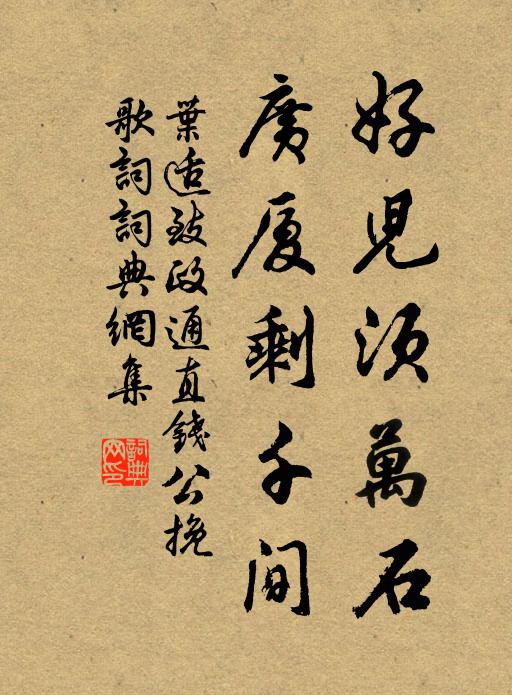 好児須萬石
廣厦剩千间
葉适致政通直錢公挽
歌詞詞典網集
詞典网印